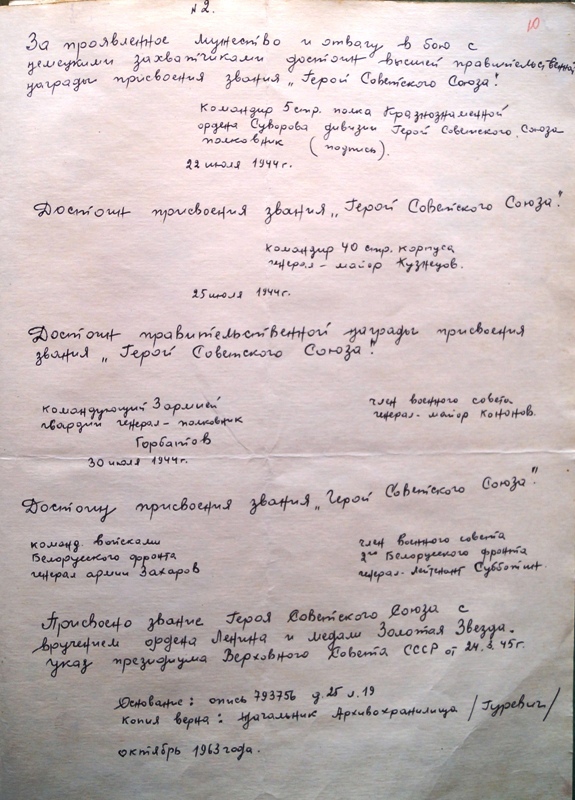 №2.
10
За проявленное мужество и отвагу в бою с
немецкими захватчиками достоин высшей правительственной
награды присвоения звания „Герой Советского Союза".
Командир 5 стр. полка Краснознаменной
ордена Суворова дивизии Герой Советского Союза
полковник (подпись).
22 июля 1944 г.
Достоин присвоения звания „Герой Советского Союза".
Командир 40 стр. корпуса
генерал-майор Кузнецов.
25 июля 1944г.
Достоин правительственной награды присвоения
звания „Герой Советского Союза".
командующий 3 армией
гвардии генерал-полковник
Горбатов
30 июля 1944г.
член военного совета
генерал-майор Кононов.
Достоин присвоения звания „Герой Советского Союза".
команд. войсками
Белорусского фронта
генерал армии Захаров
член военного совета
2го Белорусского фронта
генерал-лейтенант Субботин.
Присвоено звание Героя Советского Союза с
вручением ордена Ленина и медали Золотая Звезда.
указ президиума Верховного Совета СССР от 24. 45г.
Основание: опись 793756 д.25 л.19
Копия верна: Начальник Архивохранилища /Гуревич/
октябрь 1963 года.